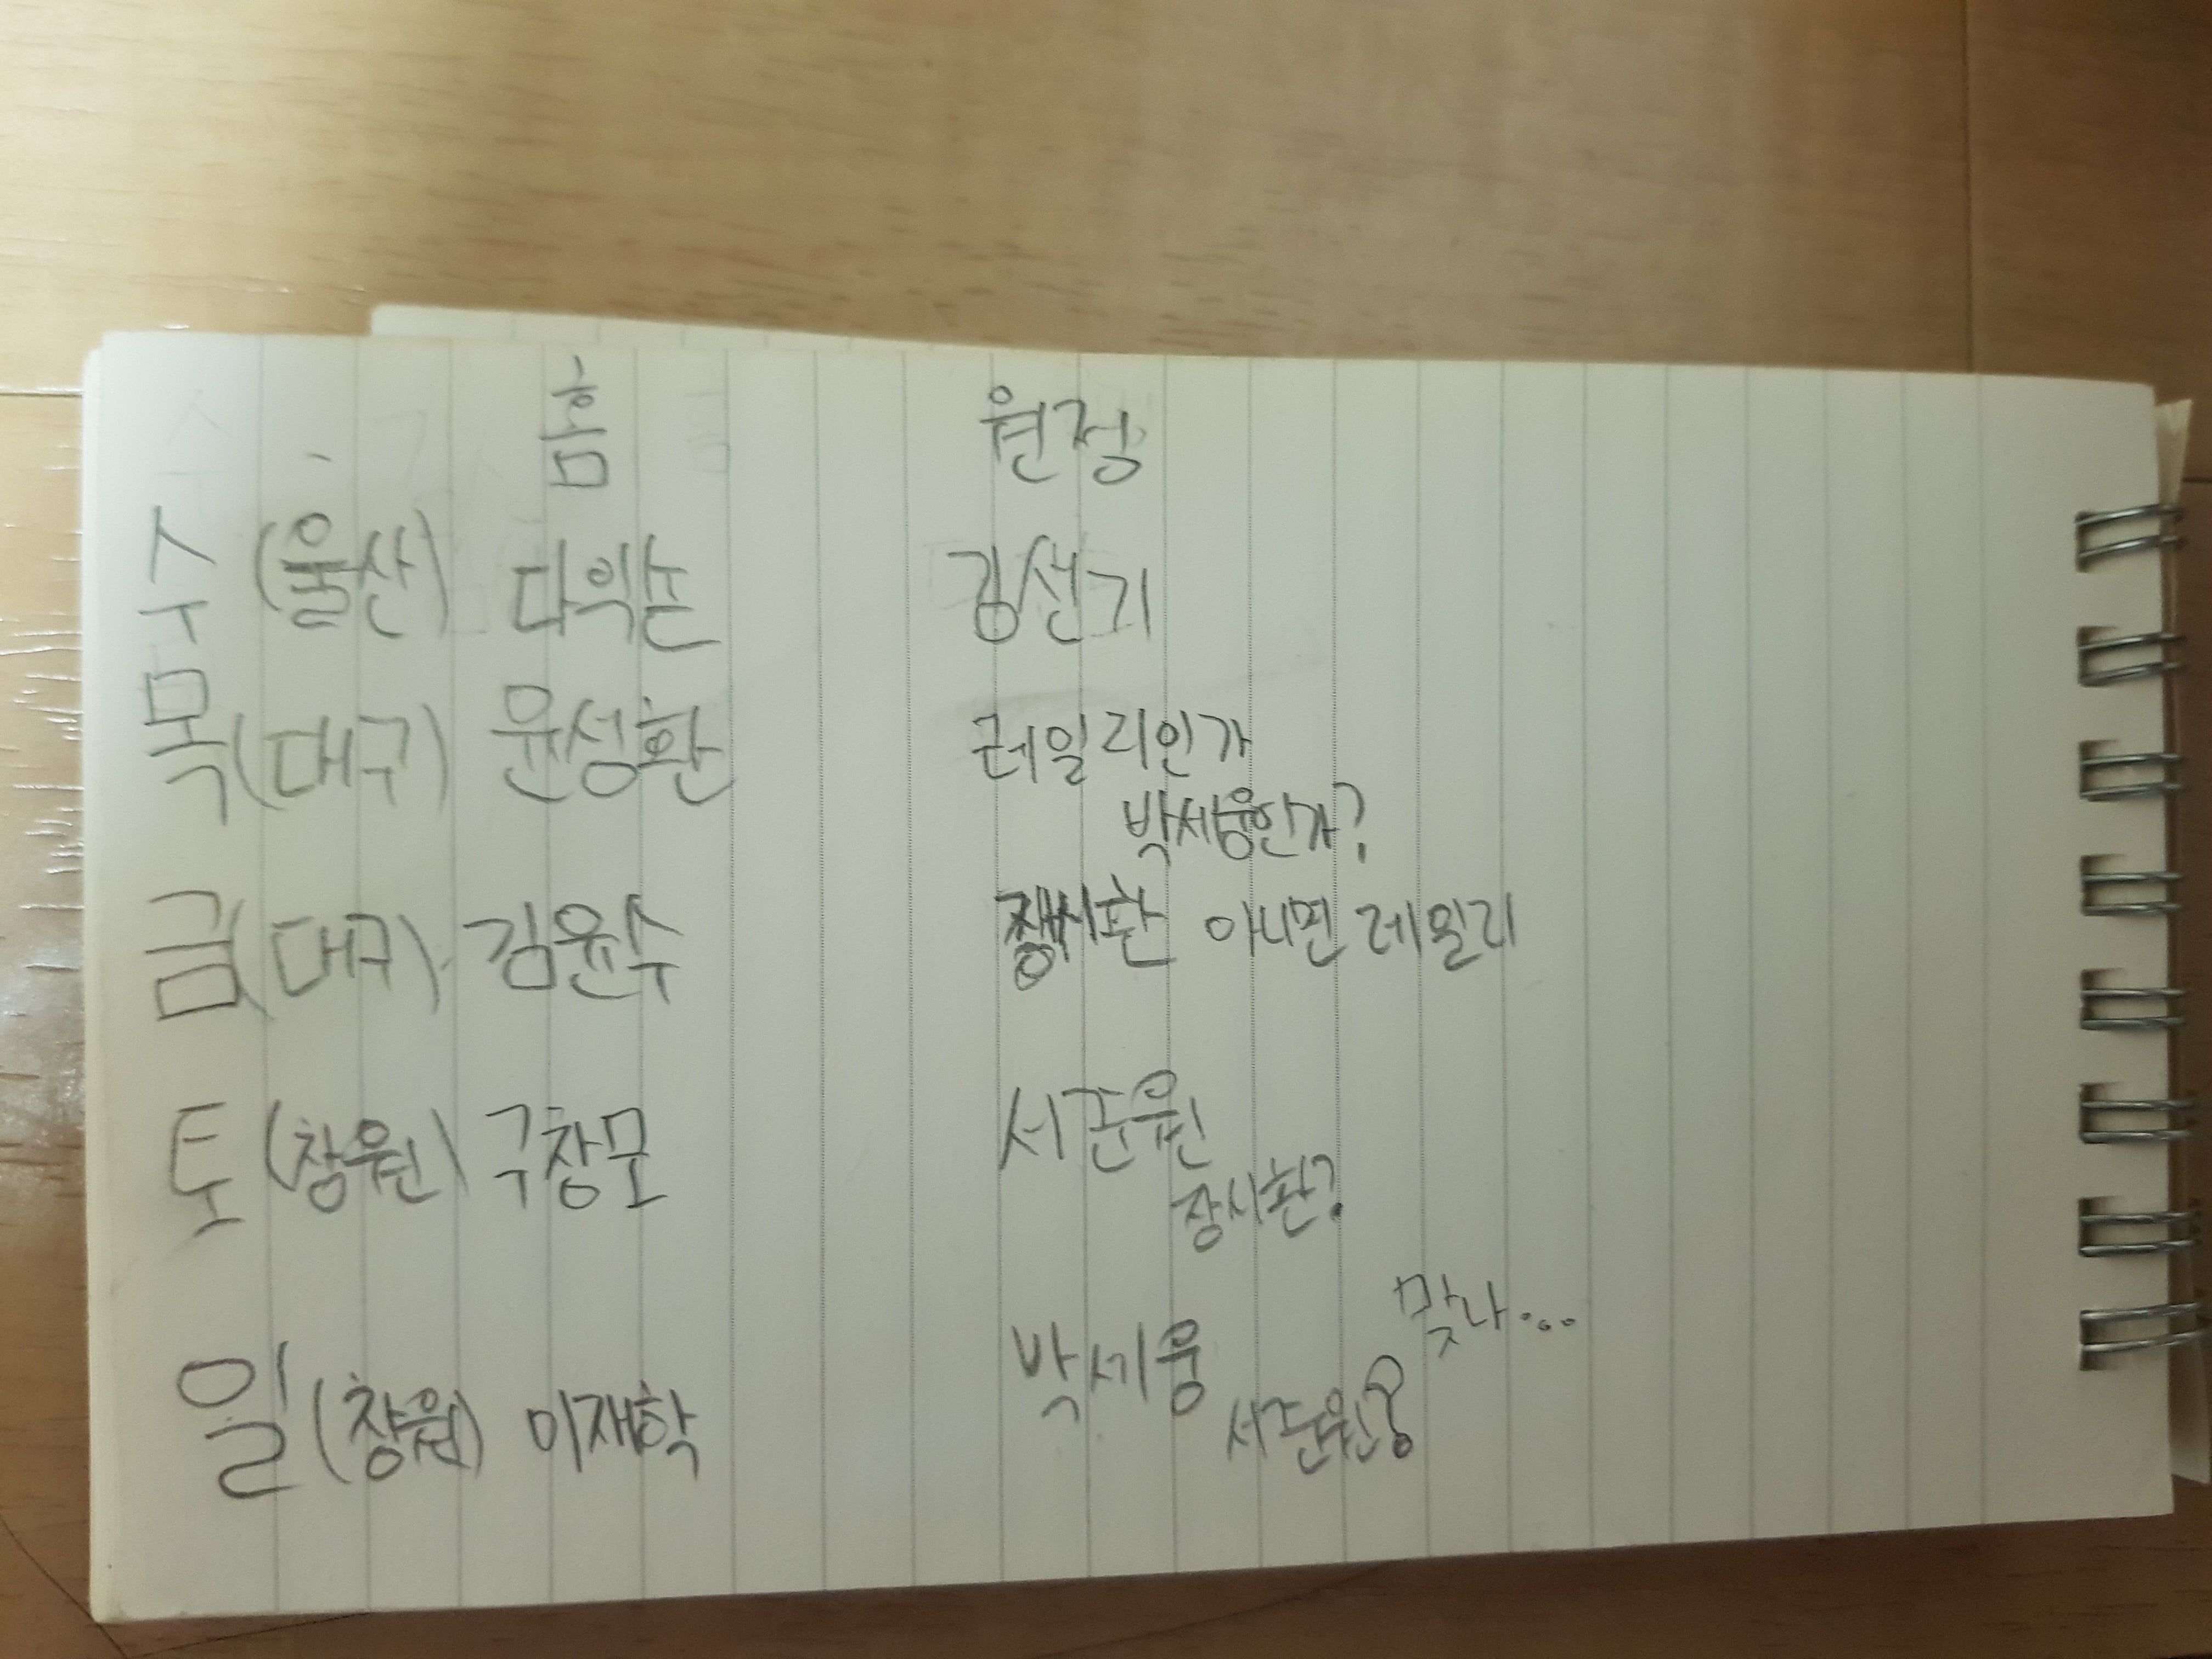 홈 원정
수 (울산) 다익손 김선기
목 (대구) 윤성환 레일리인가
박세웅인가?
금 (대구) 김윤수 장시환 아니면 레일리
토 (창원) 구창모 서준원
장시환?
맞나...
일 (창원) 이재학 박세웅
서준원?